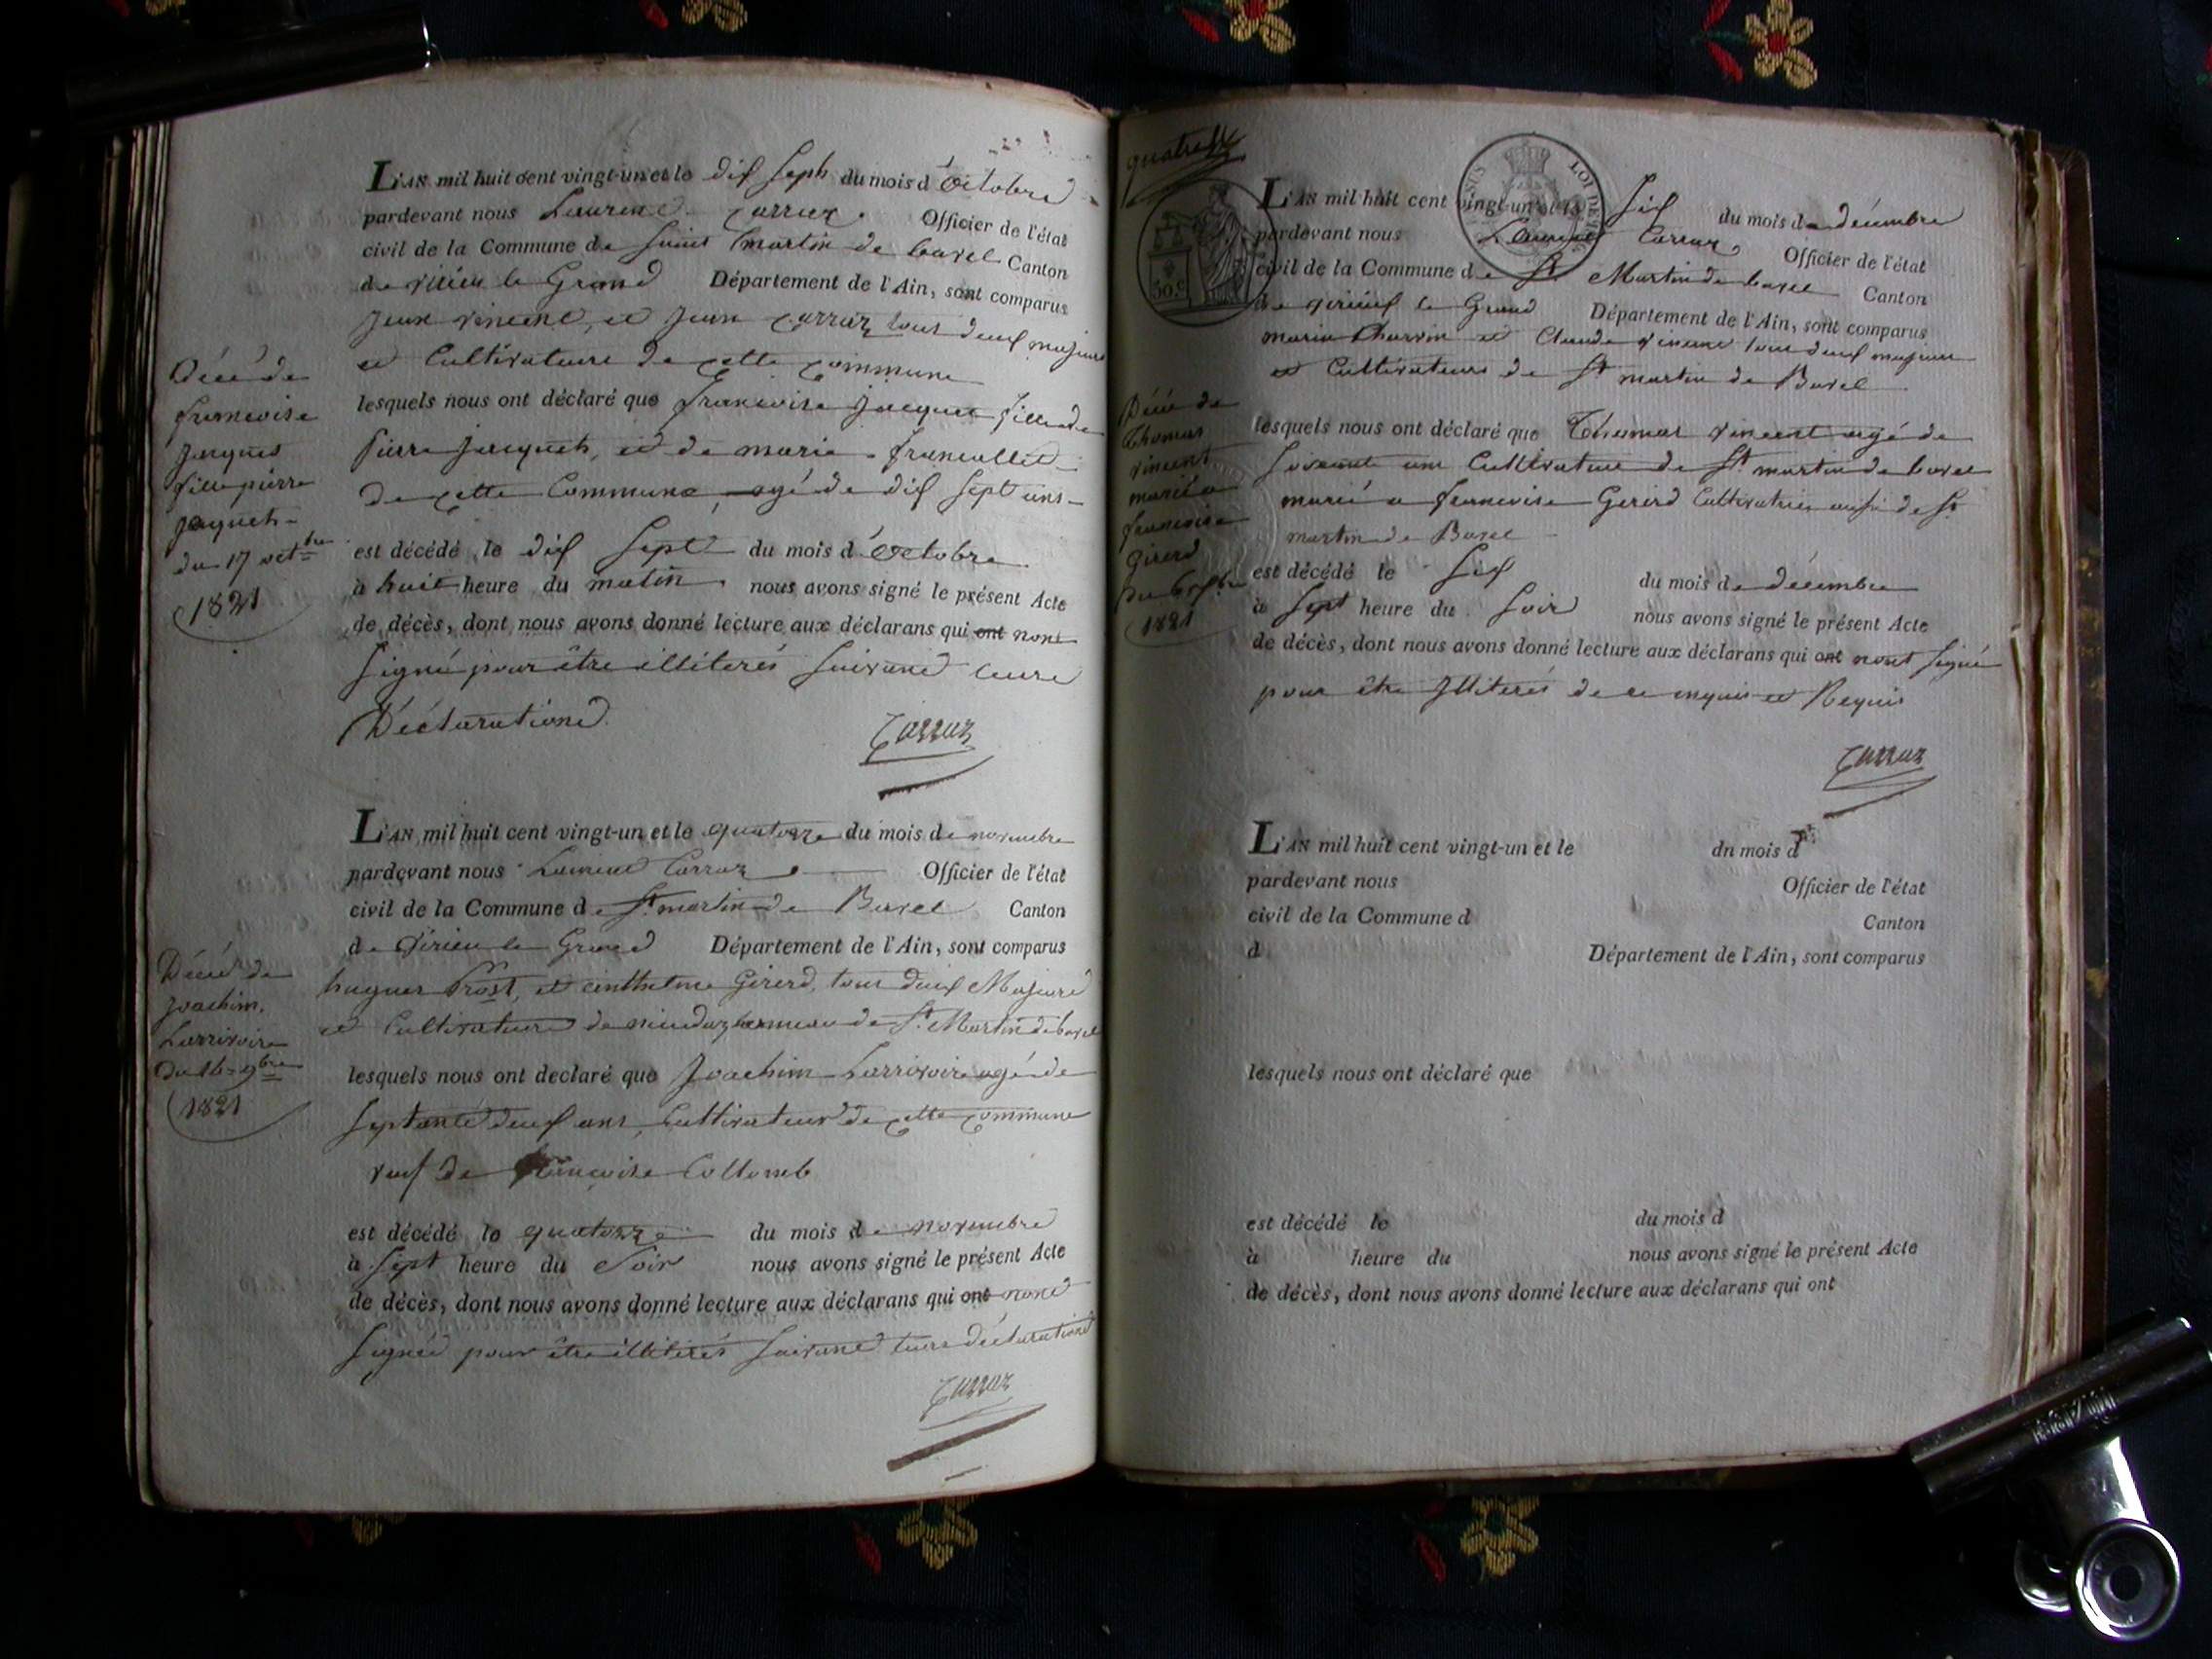 L'AN mil huit cent vingt-un et le dix sept du mois d'Octobre
pardevant nous Laurent Carraz Officier de l'état
civil de la Commune de Saint Martin de bavel Canton
de virieu le Grand Département de l'Ain, sont comparus
Jean vincent, et Jean Carraz tout deux majeurs
et Cultivateurs de cette commune
lesquels nous ont déclaré que francoise Jacquet fille de
Pierre Jacquet, et de marie
de cette Commune, agé de dix sept ans
est décédé le dix sept du mois d'Octobre
à huit heure du matin nous avons signé le présent Acte
de décès, dont nous avons donné lecture aux déclarans qui ont nont
signé pour être illiterés suivant leure
Déclarationd
Carraz
Décé de
francoise
Jacques
fille pierre
Jaquet
du 17 octbre
1821
L'AN mil huit cent vingt-un et le quatorze du mois de novembre
pardevant nous Laurent Carraz Officier de l'état
civil de la Commune de St martin de Bavel Canton
de virieu le Grand Département de l'Ain, sont comparus
hugues Prost, et anthelme Girerd, tous deux Majeurs
et Cultivateurs de hameau de St Martin de bavel
lesquels nous ont declaré que Joachim Larrivoire agé de
septante deux ans, Cultivateur de cette commune
veuf de francoise Collomb
est décédé le quatorze du mois de novembre
à sept heure du Soir nous avons signé le présent Acte
de décès, dont nous avons donné lecture aux déclarans qui ont nont
signés pour être illiterés suivant leurs déclarations
Carraz
Décé de
Joachim
Larrivoire
du 14 9bre
1821
L'AN mil huit cent vingt-un et le six du mois de décembre
pardevant nous Laurent Carraz Officier de l'état
civil de la Commune de St Martin de bavel Canton
de virieux le Grand Département de l'Ain, sont comparus
marin Charvin et Claude vincent tous deux majeurs
et Cultivateurs de St martin de Bavel
lesquels nous ont déclaré que Thomas vincent agé de
soixante ans Cultivateur de St martin de bavel
marié a francoise Girerd Cultivatrice aussi de St
martin de Bavel
est décédé le six du mois de décembre
à sept heure du Soir nous avons signé le présent Acte
de décès, dont nous avons donné lecture aux déclarans qui ont nont signé
pour être Illiterés de ce enquis et Requis
Carraz
LOI DE
50.c
Décé de
Thomas
vincent
marié a
francoise
Girerd
1821
L'AN mil huit cent vingt-un et le dn mois d
pardevant nous Officier de l'état
civil de la Commune d Canton
d Département de l'Ain, sont comparus
lesquels nous ont déclaré que
est décédé le du mois d
à heure du nous avons signé le présent Acte
de décès, dont nous avons donné lecture aux déclarans qui ont